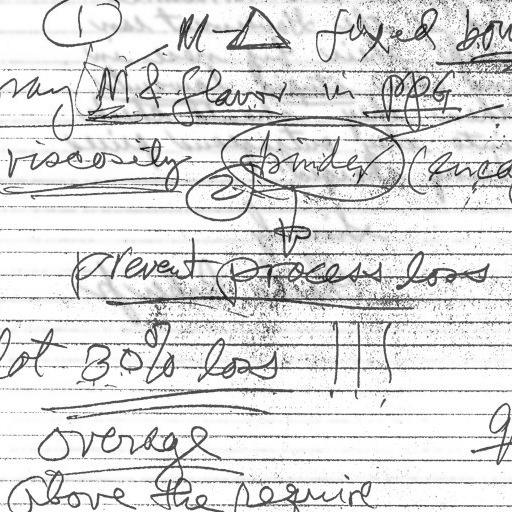 1 M-△ fixed bon
ray M & flavor in PPG
viscosity binder (enca
2
prevent process loss
lot 30% loss !!!
overage
above the require